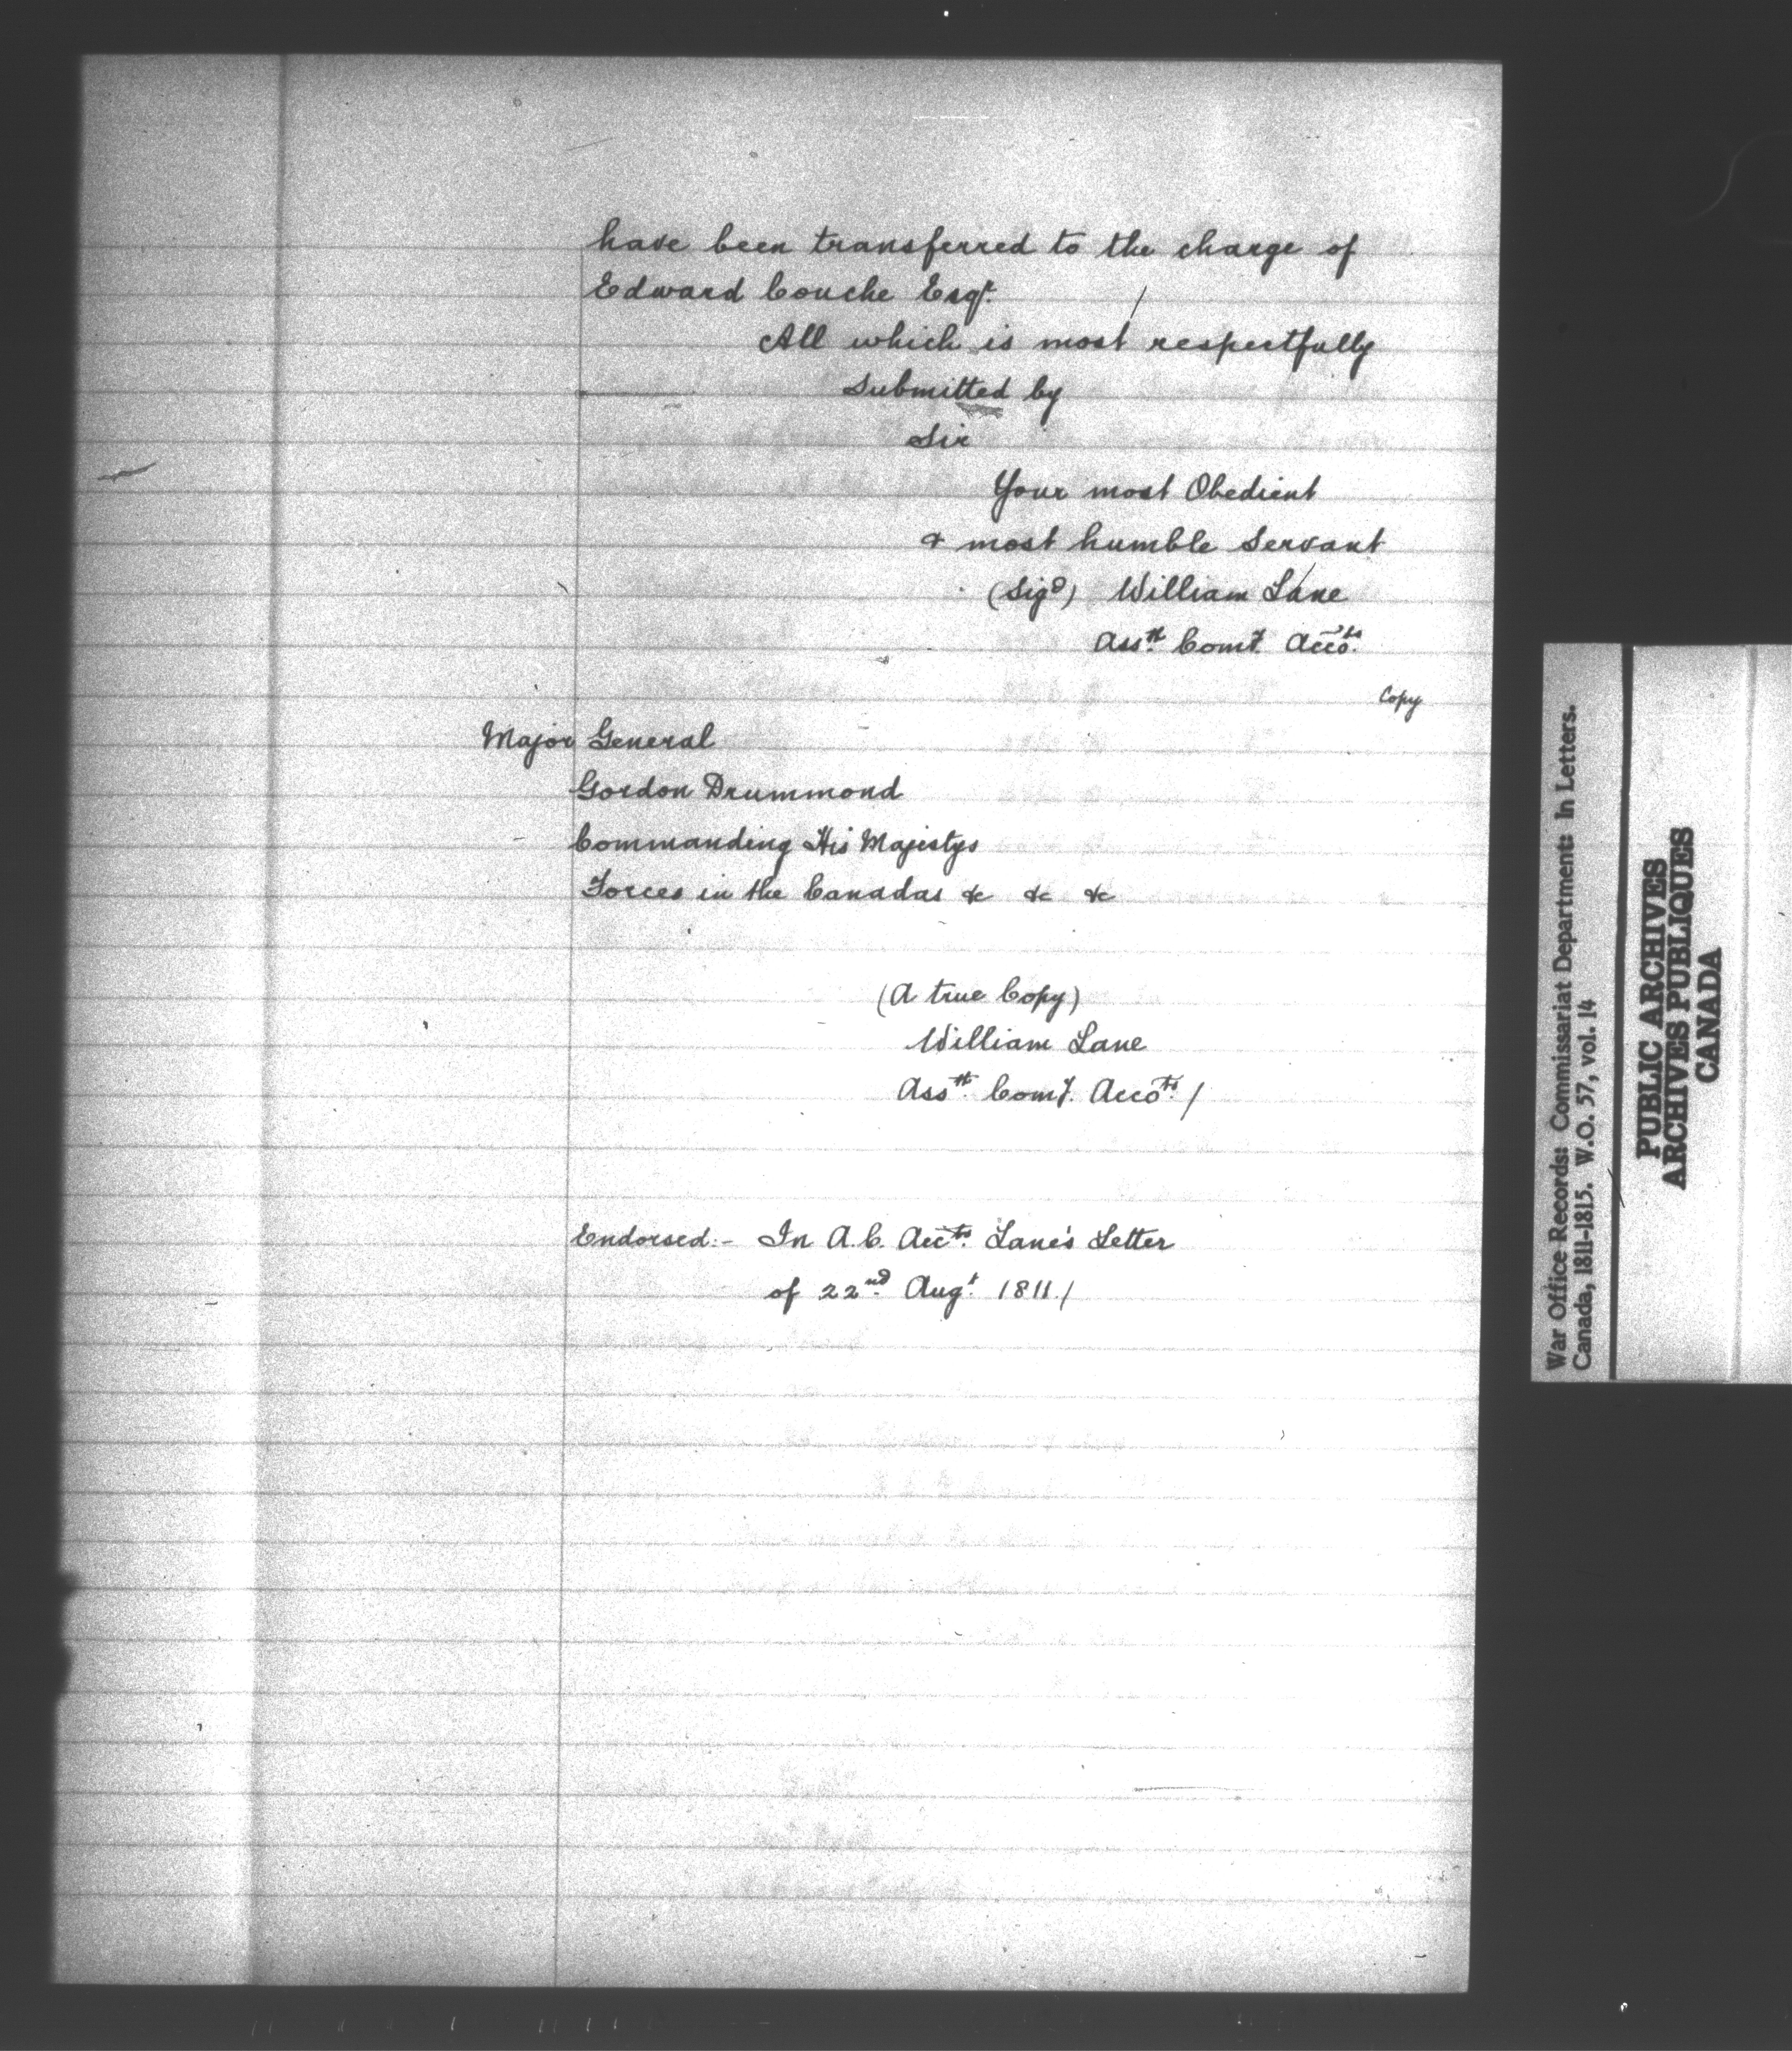 have been transferred to the charge of
Edward Couche Esqr.
All which is most respectfully
Submitted by
Sir
Your most Obedient
& most humble Servant
(Sigd) William Lane
Asst. Comy. Accots.
Copy
Major General
Gordon Drummond
Commanding His Majestys
Forces in the Canadas &c &c &c
(A true Copy)
William Lane
Asst. Comy. Accots. /
Endorsed:- In A.C. Accts. Lane's Letter
of 22nd. Augt. 1811./
War Office Records: Commissariat Department: In Letters.
Canada, 1811-1815. W.O. 57, vol. 14
PUBLIC ARCHIVES
ARCHIVES PUBLIQUES
CANADA